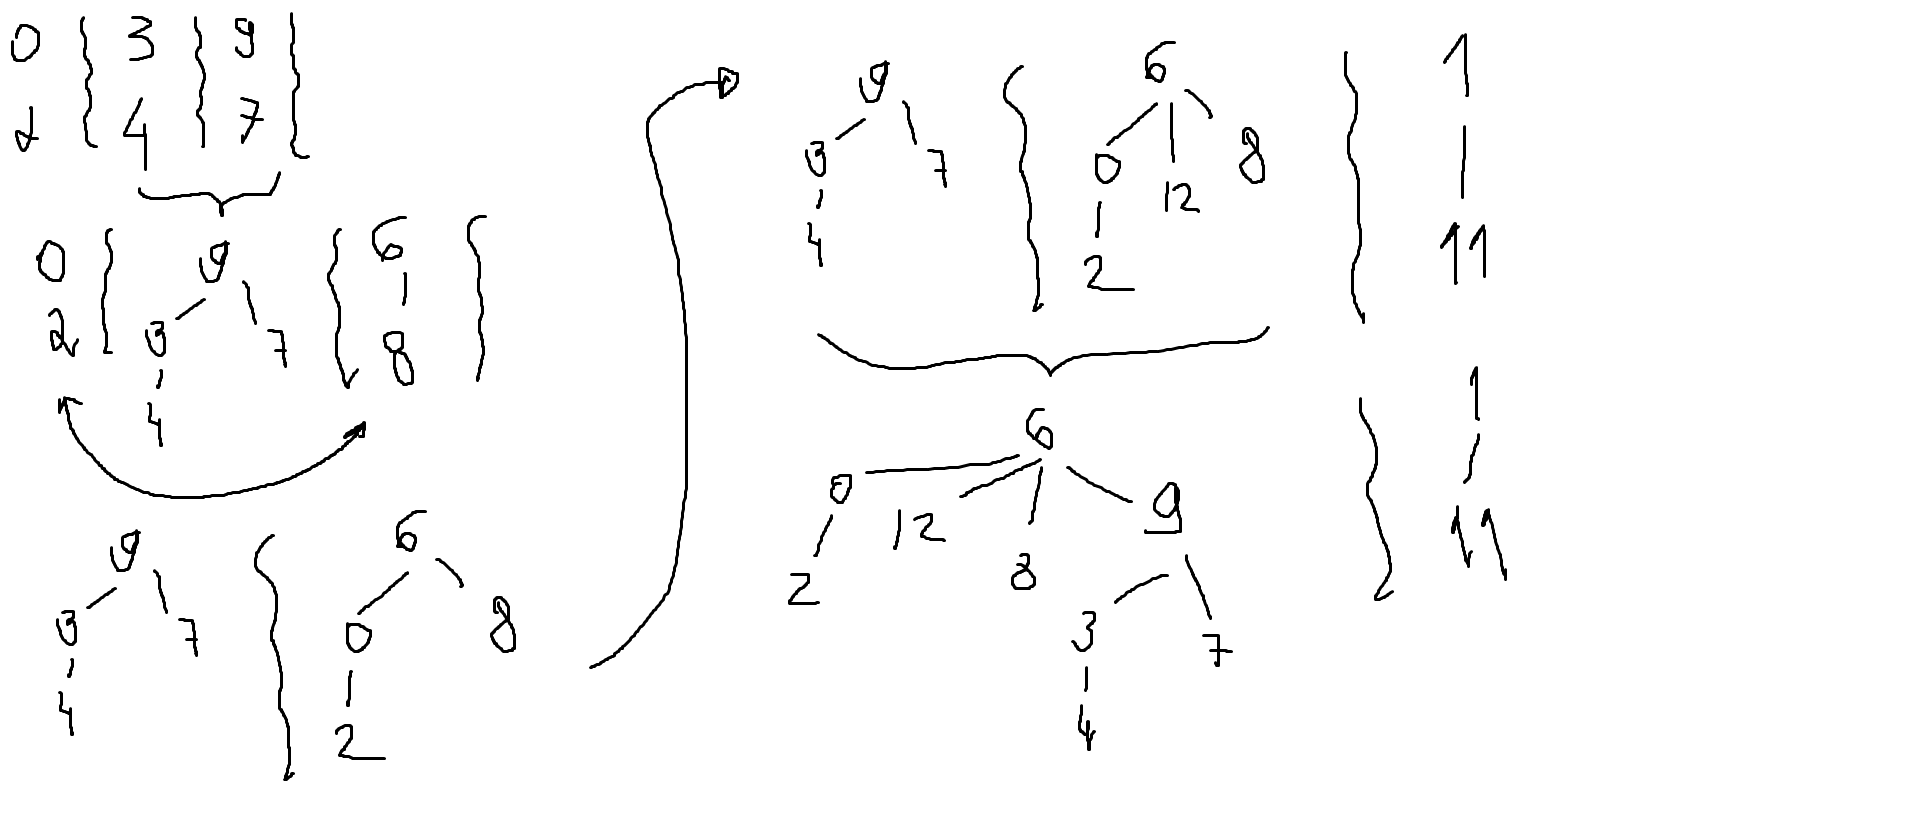 0 3 9
2 4 7
0 9 6
2 3 7 8
4
9 6
3 7 0 8
4 2
9 6 1
3 7 0 12 8
4 2 11
6 1
0 12 8 9 11
2 3 7
4